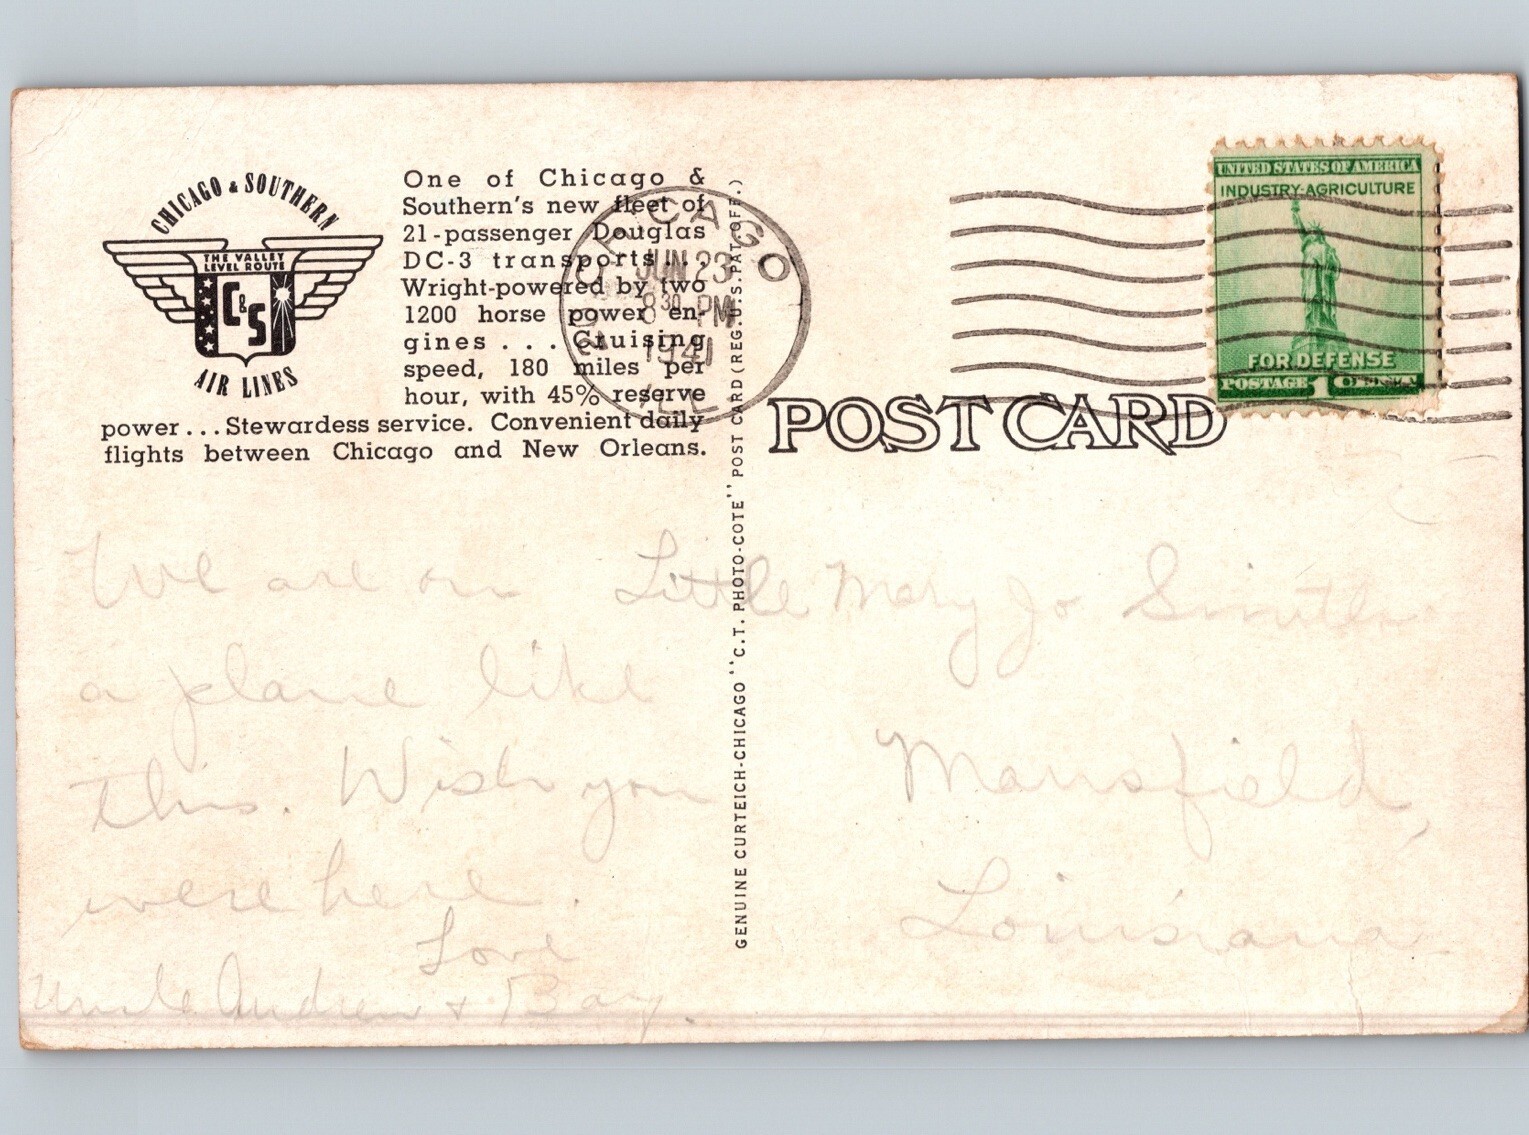 CHICAGO & SOUTHERN
THE VALLEY
LEVEL ROUTE
C&S
AIR LINES
One of Chicago &
Southern's new fleet of
21-passenger Douglas
DC-3 transports . . .
Wright-powered by two
1200 horse power en-
gines . . . Cruising
speed, 180 miles per
hour, with 45% reserve
power . . . Stewardess service. Convenient daily
flights between Chicago and New Orleans.
CHICAGO
JUN 23
8 30 PM
1941
ILL.
GENUINE CURTEICH-CHICAGO "C.T. PHOTO-COTE" POST CARD (REG. U.S. PAT. OFF.)
POST CARD
UNITED STATES OF AMERICA
INDUSTRY-AGRICULTURE
FOR DEFENSE
POSTAGE 1¢
We are on
a plane like
this. Wish you
were here.
Love
Uncle Andrew + Bay.
Little Mary Jo Smith
Mansfield,
Louisiana